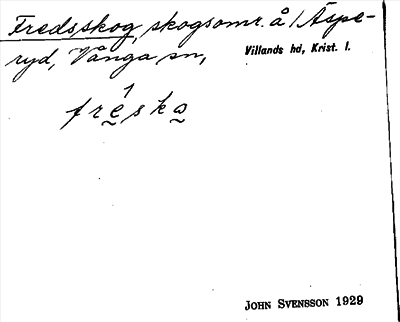 Fredsskog, skogsomr. å 1 Äspe-
ryd, Vånga sn, Villands hd, Krist. l.
fre̬ska̬
John Svensson 1929